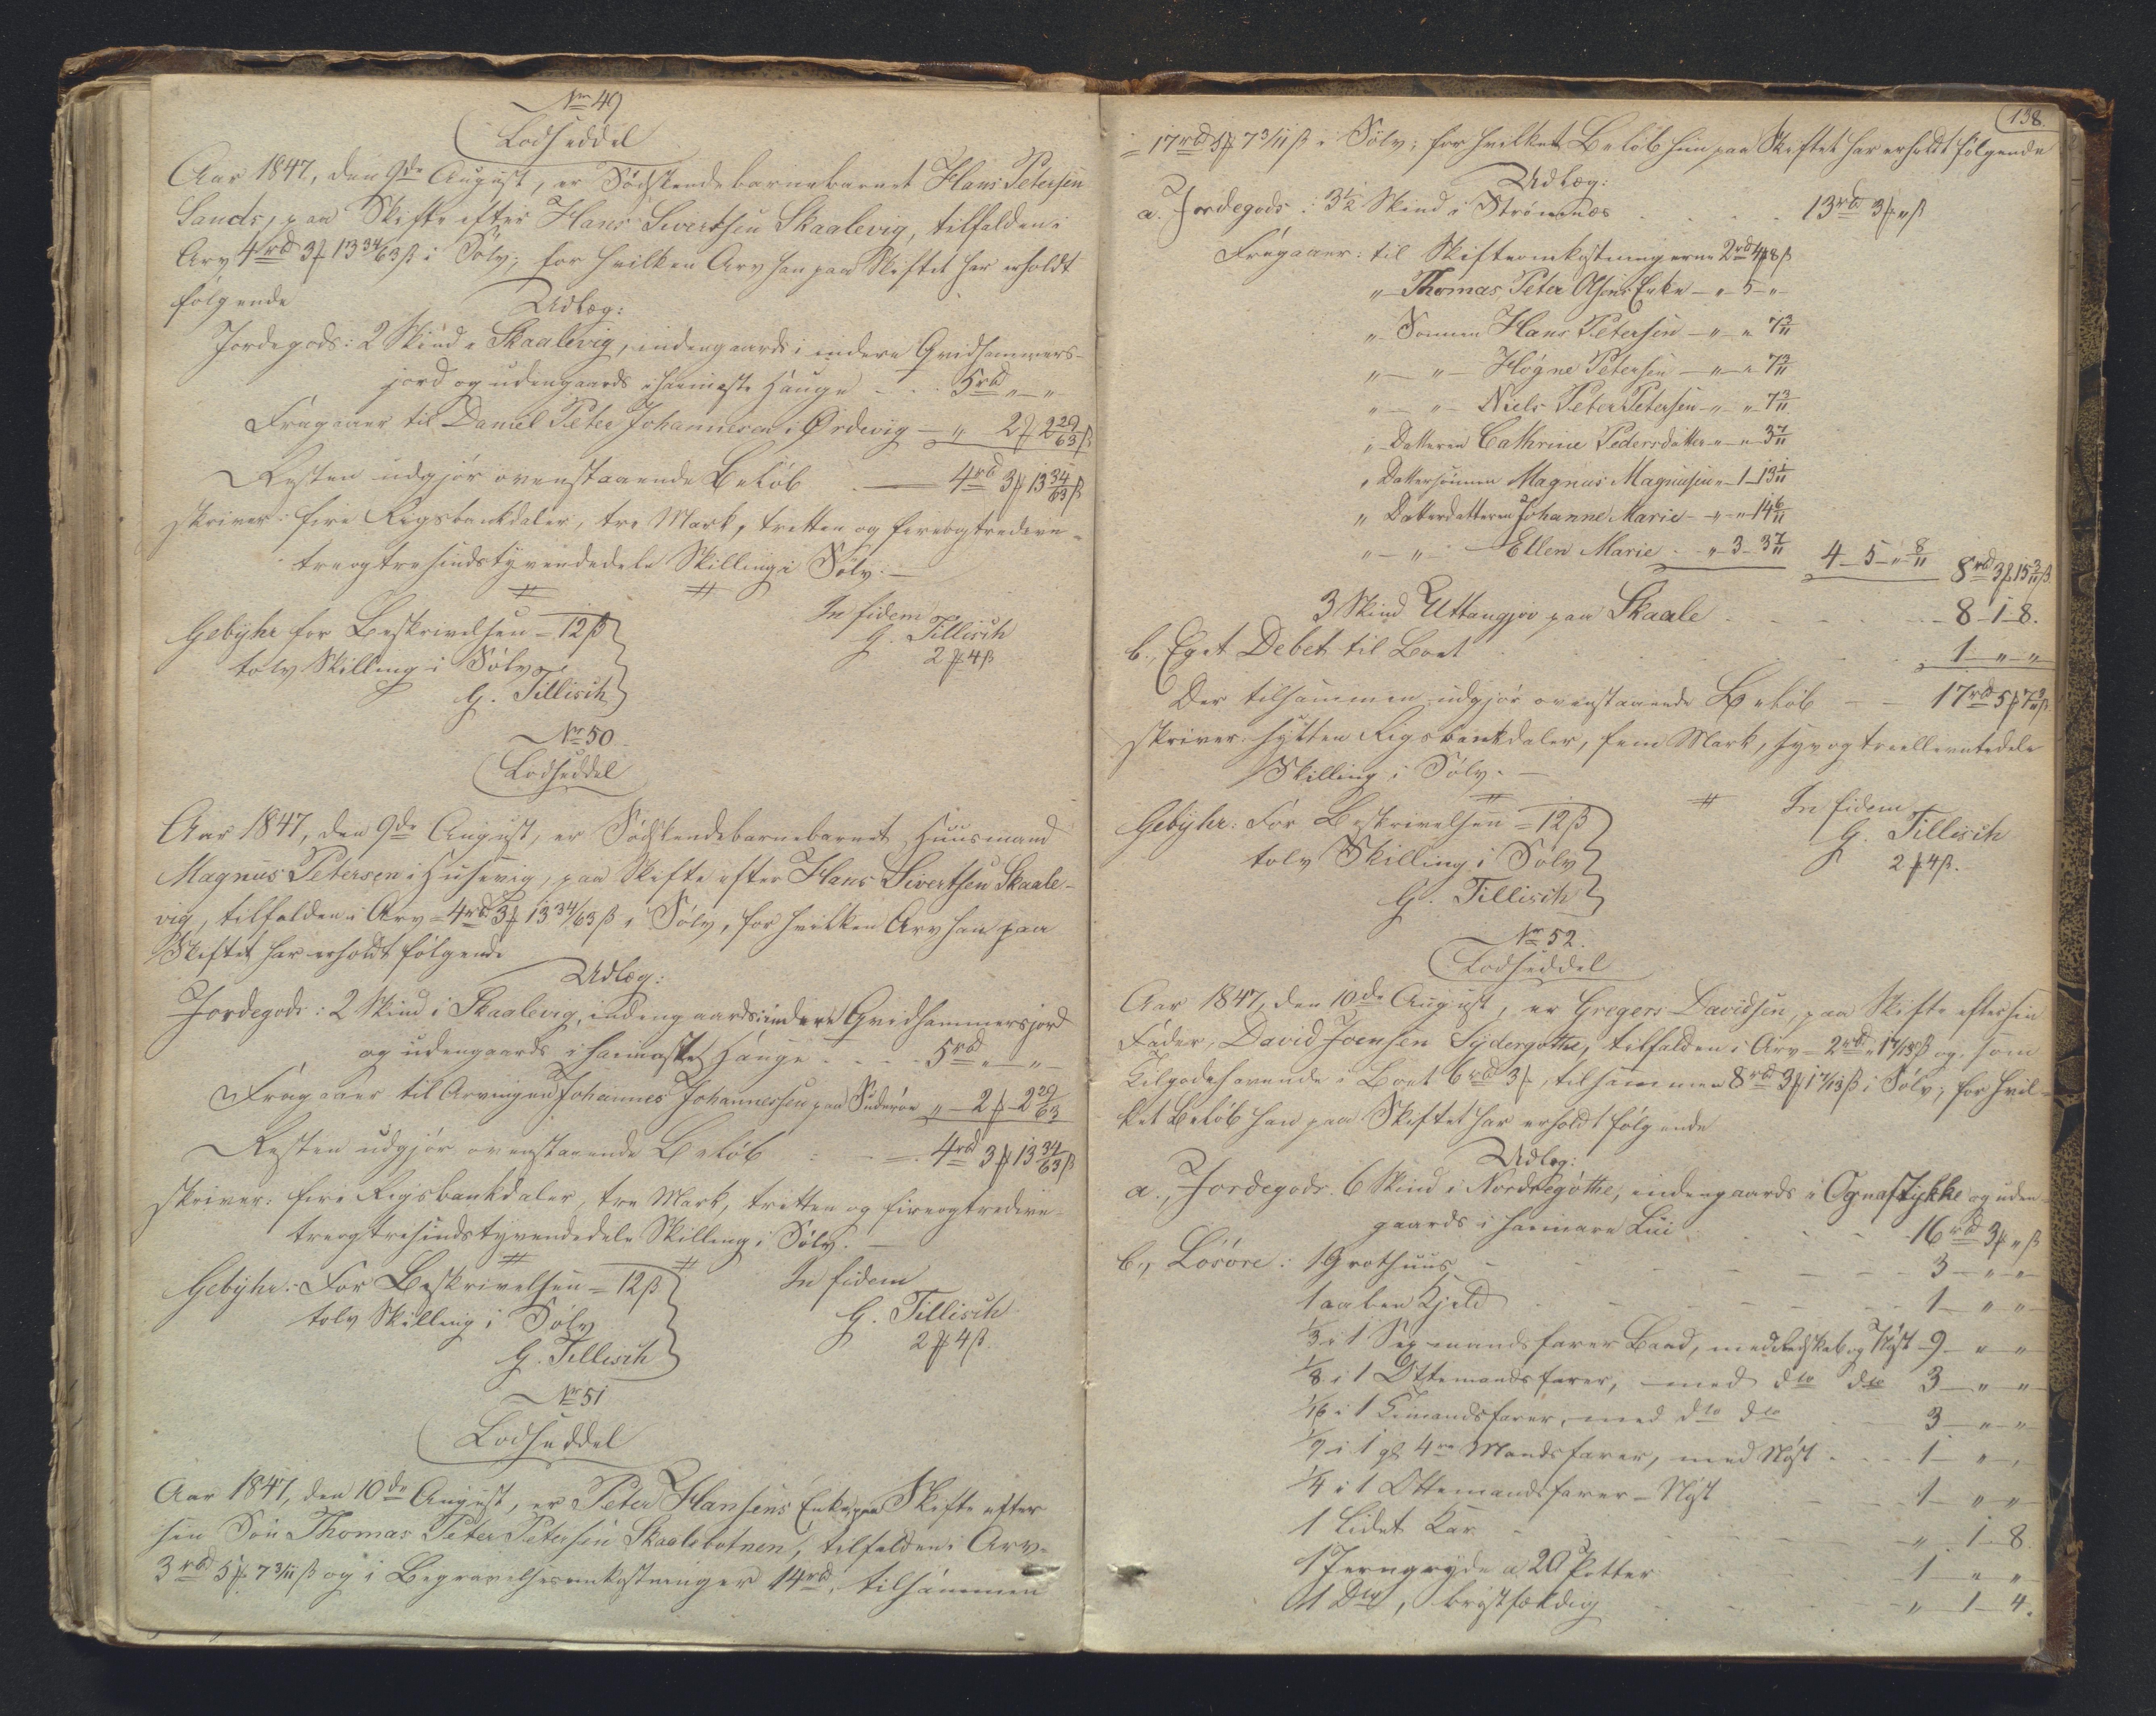 Nr 49
Lodseddel
Aar 1847, den 9de August, er Södskendebarnebarnet Hans Petersen
Sands, paa Skifte efter Hans Sivertsen Skaalevig, tilfalden i
Arv 4rbd 3 ₰ 13 34/63 ß i Sölv; for hvilken Arv han paa Skiftet har erholdt
følgende
Udlæg:
Jordegods: 2 Skind i Skaalevig, indengaards i indere Qvidhammers-
jord og udengaards i heimaste Hauge - - 5rbd „ — „
Fragaaer til Daniel Peter Johannesen i Ørdevig — „ 2 ₰ 2 29/63 ß
Resten udgjør ovenstaaende Beløb — 4rbd 3 ₰ 13 34/63 ß
skriver: fire Rigsbankdaler, tre Mark, tretten og fireogtredive-
treogtresindstyvendedele Skilling i Sölv. —
Gebyhr for Beskrivelsen = 12 ß
tolv Skilling i Sölv
G. Tillisch
In fidem
G. Tillisch
2 ₰ 4 ß
Nr 50
Lodseddel
Aar 1847, den 9de August, er Södskendebarnebarnet Huusmand
Magnus Petersen i Husevig, paa Skifte efter Hans Sivertsen Skaale-
vig, tilfalden i Arv = 4rbd 3 ₰ 13 34/63 ß i Sölv, for hvilken Arv han paa
Skiftet har erholdt følgende
Udlæg:
Jordegods: 2 Skind i Skaalevig, indengaards i indere Qvidhammersjord
og udengaards i heimaste Hauge - - - 5rbd „ — „
Fragaaer til Arvingen Johannes Johannessen paa Suderöe „ — 2 ₰ — 2 29/63
Resten udgjør ovenstaaende Beløb - - 4rbd 3 ₰ 13 34/63 ß
skriver: fire Rigsbankdaler, tre Mark, tretten og fireogtredive-
treogtresindstyvendedele Skilling i Sölv. —
Gebyhr: For Beskrivelsen = 12 ß
tolv Skilling i Sölv
G. Tillisch
In fidem
G. Tillisch
2 ₰ 4 ß.
Nr 51
Lodseddel
Aar 1847, den 10de August, er Peter Hansens Enke, paa Skifte efter
sin Sön Thomas Peter Petersen Skaalebotnen, tilfalden i Arv =
3rbd 5 ₰ 7 3/11 ß og i Begravelsesomkostninger 14rbd, tilsammen
138.
= 17rbd 5 ₰ 7 3/11 ß i Sölv; for hvilket Beløb hun paa Skiftet har erholdt følgende
Udlæg:
a. Jordegods: 3 1/2 Skind i Strömnæs - - - - 13rbd 3 ₰ „ ß
Fragaaer: til Skifteomkostningerne 2rbd 4 ₰ 8 ß
„ Thomas Peter Olsens Enke — „ 5 — „
„ Sönnen Hans Petersen — „ — „ 7 3/11
„ — „ — Högne Petersen — „ — „ 7 3/11
„ — „ — Niels Peter Petersen — „ — „ 7 3/11
„ Datteren Cathrine Pedersdatter „ — „ 3 7/11
„ Dattersönnen Magnus Magnusen „ — 1 — 13 1/11
„ Datterdatteren Johanne Marie — „ — „ 14 6/11
„ — „ — Ellen Marie - „ 3 — 3 7/11 4 — 5 — „ 8/11 8rbd 3 ₰ 15 3/11 ß
3 Skind Uttangjov paa Skaale - - - - - 8 — 1 — 8.
b., Eget Debet til Boet - - - - 1 — „ — „
Der tilsammen udgjør ovenstaaende Beløb — — 17rbd 5 ₰ 7 3/11 ß
skriver: sytten Rigsbankdaler, fem Mark, syv og treellevtedele
Skilling i Sölv. —
Gebyhr: For Beskrivelsen = 12 ß
tolv Skilling i Sölv
G. Tillisch
In fidem
G. Tillisch
2 ₰ 4 ß.
Nr 52.
Lodseddel
Aar 1847, den 10de August, er Gregers Davidsen, paa Skifte efter sin
Fader, David Joensen Sydergöthe, tilfalden i Arv = 2rbd „ 1 7/13 ß og, som
Tilgodehavende i Boet 6rbd 3 ₰, tilsammen 8rbd 3 ₰ 1 7/13 ß i Sölv; for hvil-
ket Beløb han paa Skiftet har erholdt følgende
Udlæg:
a., Jordegods. 6 Skind i Nordregöthe, indengaards i Ognastykke og uden-
gaards i heimare Lui - - - - 16rbd 3 ₰ „ ß
b., Lösöre: 1 Grothuus - - - - - - 3 — „ — „
1 aaben Kjeld - - - - - - 1 — „ — „
1/3 i 1 Sexmandsfarer Baad, med Redskab og Nöst — 9 — „ — „
1/8 i 1 Ottemandsfarer, med dto dto 3 — „ — „
1/16 i 1 Timandsfarer, med dto dto - - 3 — „ — „
1/9 i 1 gl 4re Mandsfarer, med Nöst - - - 1 — „ — „
1/4 i 1 Ottemandsfarer — Nöst - - - 1 — „ — „
1 Lidet Kar - - - - - - „ — 1 — 8.
1 Jerngryde a 20 Potter - - - 1 — „ — „
1 Dto, bröstfældig - - - - „ — 1 — 4.